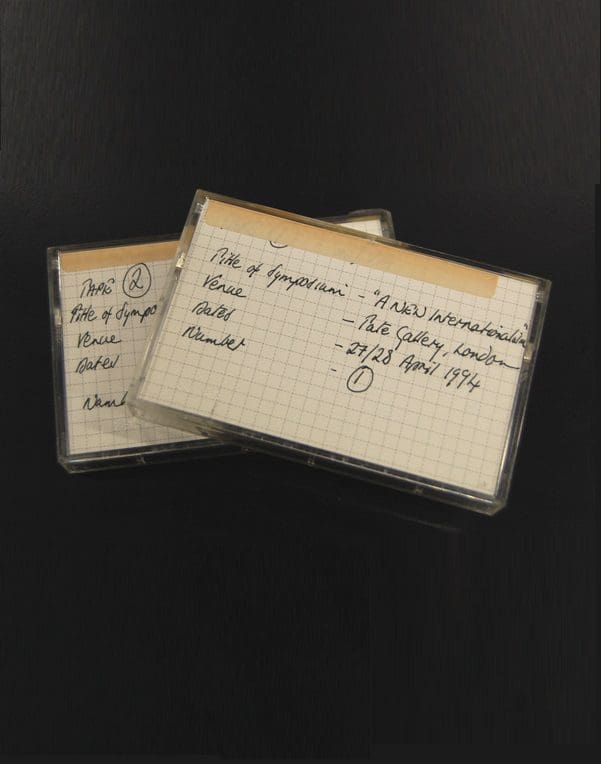 TAPE 2
Title of Sympo
Venue
Dates
Numb
Title of Symposium - "A NEW Internationalism"
Venue - Tate Gallery, London
Dates - 27/28 April 1994
Number - 1